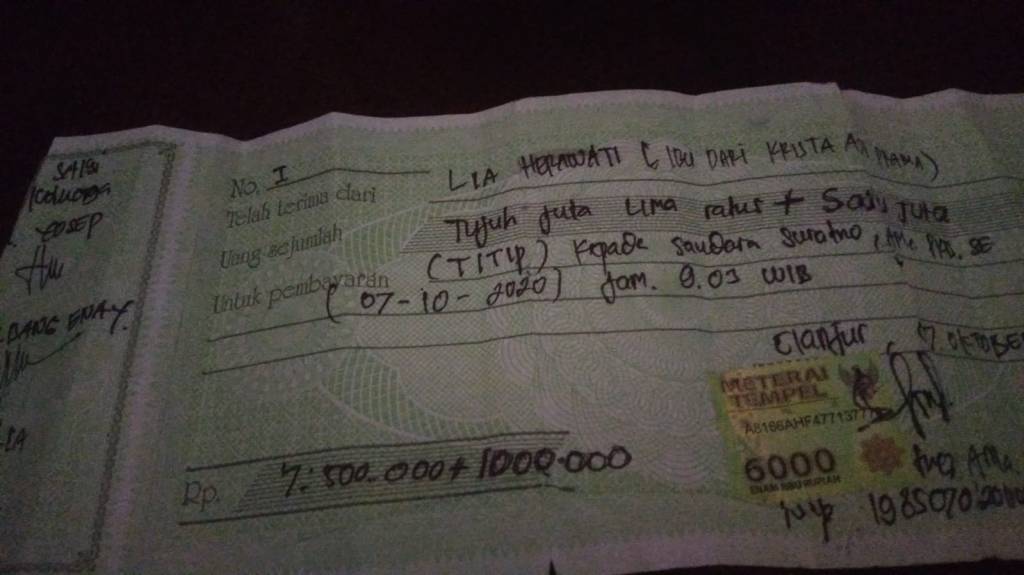 SAKSI
Keluarga
COSEP
BANG ENAY.
No. I
Telah terima dari LIA HERAWATI ( IBU DARI KRISTA
Uang sejumlah Tujuh Juta Lima ratus + Satu Juta
Untuk pembayaran (TITIP) Kepada saudara Suratno, SE
(07-10-2020) Jam. 9.03 WIB
Cianjur, 7. OKTOBER
METERAI
TEMPEL
6000
ENAM RIBU RUPIAH
Rp. 7.500.000 + 1000.000